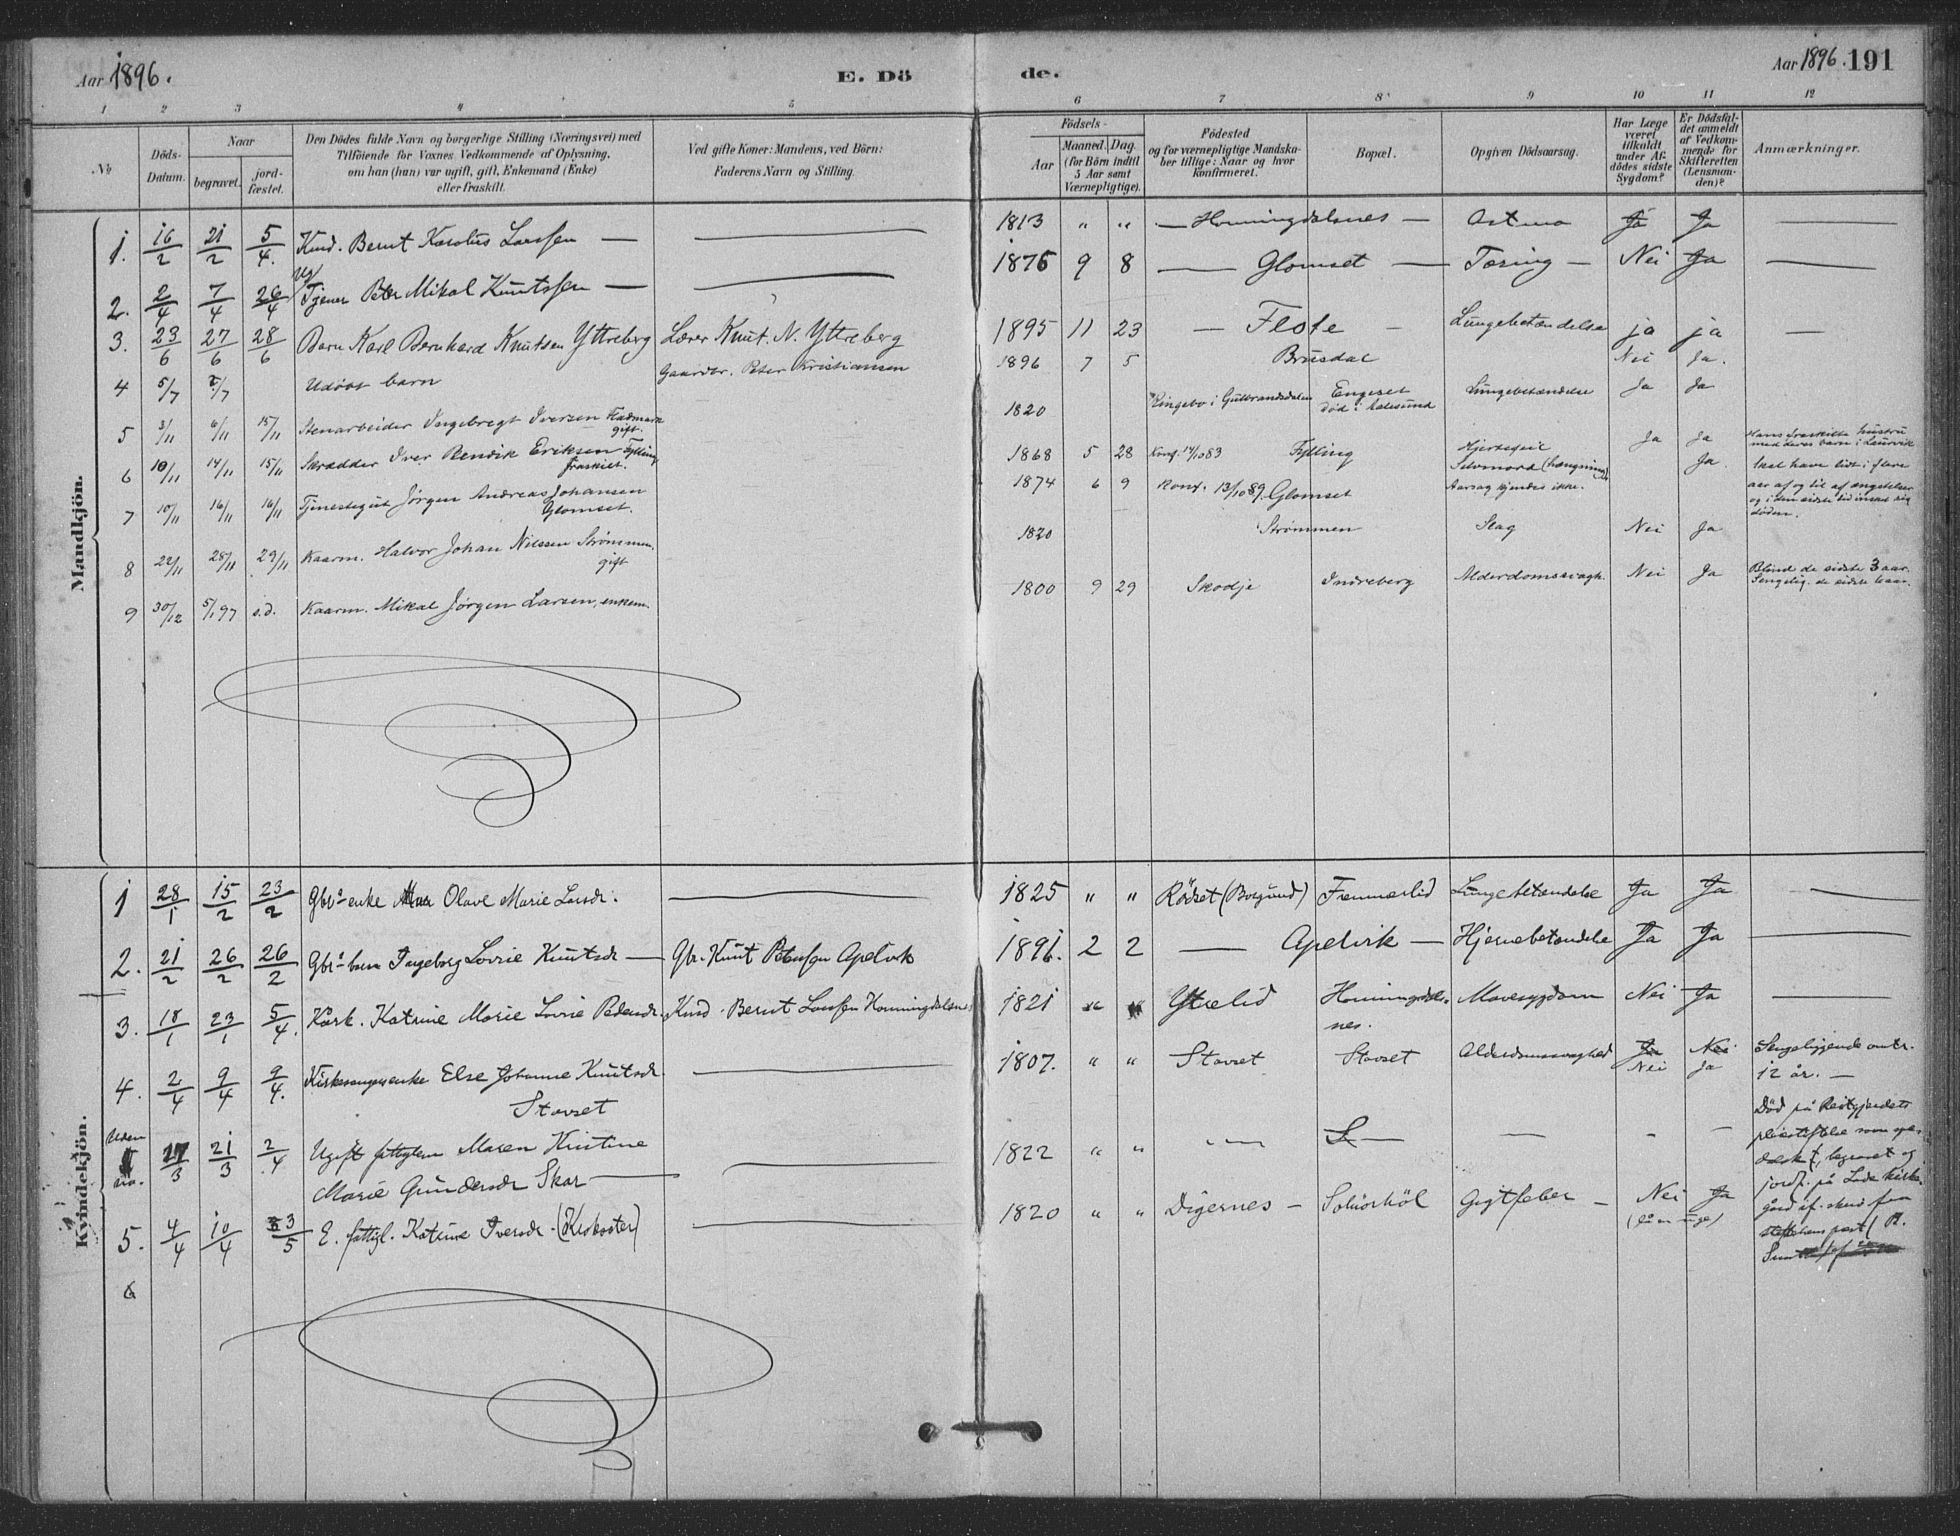 Aar 1896.
E. Dö
de.
Aar 1896. 191
1 2 3 4 5 6 7 8 9 10 11 12
No
Döds-Datum.
Naar
begravet.
jord-fæstet.
Den Dödes fulde Navn og borgerlige Stilling (Næringsvei) med
Tilföiende for Voxnes Vedkommende af Oplysning,
om han (hun) var ugift, gift, Enkemand (Enke)
eller fraskilt.
Ved gifte Koner: Mandens, ved Börn:
Faderens Navn og Stilling.
Födsels-
Aar
Maaned. Dag.
(for Börn indtil
5 Aar samt
Værnepligtige).
Födested
og for værnepligtige Mandska-
ber tillige: Naar og hvor
Konfirmeret.
Bopæl.
Opgiven Dödsaarsag.
Har Læge
været
tilkaldt
under Af-
dödes sidste
Sygdom?
Er Dödsfal-
det anmeldt
af Vedkom-
mende for
Skifteretten
(Lensman-
den)?
Anmærkninger.
Mandkjön.
1. 16/2 21/2 5/4. Kmd. Bernt Karolus Larssen — — 1813 " " — Honningdalsnes — Astma Ja Ja —
2. 2/4 7/4 26/4 Ug. Tjener Peter Mikal Knutssen — — 1876 9 8 — Glomset — Tæring — Nei Ja —
3. 23/6 27/6 28/6 Barn Karl Bernhard Knutsen Ytreberg Lærer Knut. N. Ytreberg 1895 11 23 — Flote — Lungebetændelse ja ja —
4 5/7 7/7 Udöbt barn Gaardbr. Peter Kristiansen 1896 7 5 Brusdal Nei Ja.
5 3/11 6/11 15/11 Stenarbeider Ingebregt Iversen Hadmark gift. 1820 Ringebo i Gulbrandsdalen Engeset död i Aalesund Lungebetændelse Ja Ja
6 10/11 14/11 15/11 Skrædder Iver Bendik Eriksen Fylling fraskilt. 1868 5 28 Konf. 14/10 83 Fylling Hjertefeil Ja Ja Hans fraskilte hustru
med deres barn i Laurvik
7 10/11 16/11 16/11 Tjenestegut Jörgen Andreas Johansen Glomset. 1874 6 9 Konf. 13/10 89. Glomset Selvmord (hængning)
Aarsag kjendes ikke. Ja. Skal have lidt i flere
aar af og til af ængstelser
og i den sidste tid ønsket sig
döden.
8 22/11 28/11 29/11 Kaarm. Halvor Johan Nilssen Strömmen. gift 1820 Strömmen Slag Nei Ja
9 30/12 5/1 97 s.d. Kaarm. Mikal Jörgen Larsen, enkem. 1800 9 29 Skodje Indreberg Alderdomssvagh. Nei Ja Blind de sidste 3 aar.
Sengelig. de sidste
Kvindekjön.
1 28/1 15/2 23/2 Gbr.-enke Olave Marie Larsdr. — 1825 " " Rödset (Borgund) Fremmerlid Lungebetændelse Ja Ja —
2. 21/2 26/2 26/2 Gbr.-barn Ingeborg Lovise Knutsdr — Gbr. Knut Peterssen Apelvik 1891. 2 2 — Apelvik — Hjernebetændelse Ja Ja —
3. 18/1 23/1 5/4. Kårk. Katrine Marie Lovise Pedersdr. Kmd. Bernt Larssen Honningdalsnes 1821 " " Ytrelid Honningdals-
nes. Mavesygdom Nei Ja —
4. 2/4 9/4 9/4. Kirkesangerenke Else Johanne Knutsdr
Stavset — 1807. " " Stavset Stavset Alderdomssvaghed Ja Nei Nei Ja Sengeliggende omtr.
12 år. —
Uden no. 17/3 21/3 2/4 Ugift fattiglem Maren Kristine
Marie Gundersdr Skar — — 1822 " " — — — — — Död på Reitgjerdets
pleiestiftelse som spe-
dalsk , begravet og
jordf. på Lade kirke-
gård af
5. 4/4 10/4 3/5 E. fattigl. Katrine Iversdr. (Kirkseter) — 1820 " " Digernes — Solnörhöl Gigtfeber — Nei Ja
6